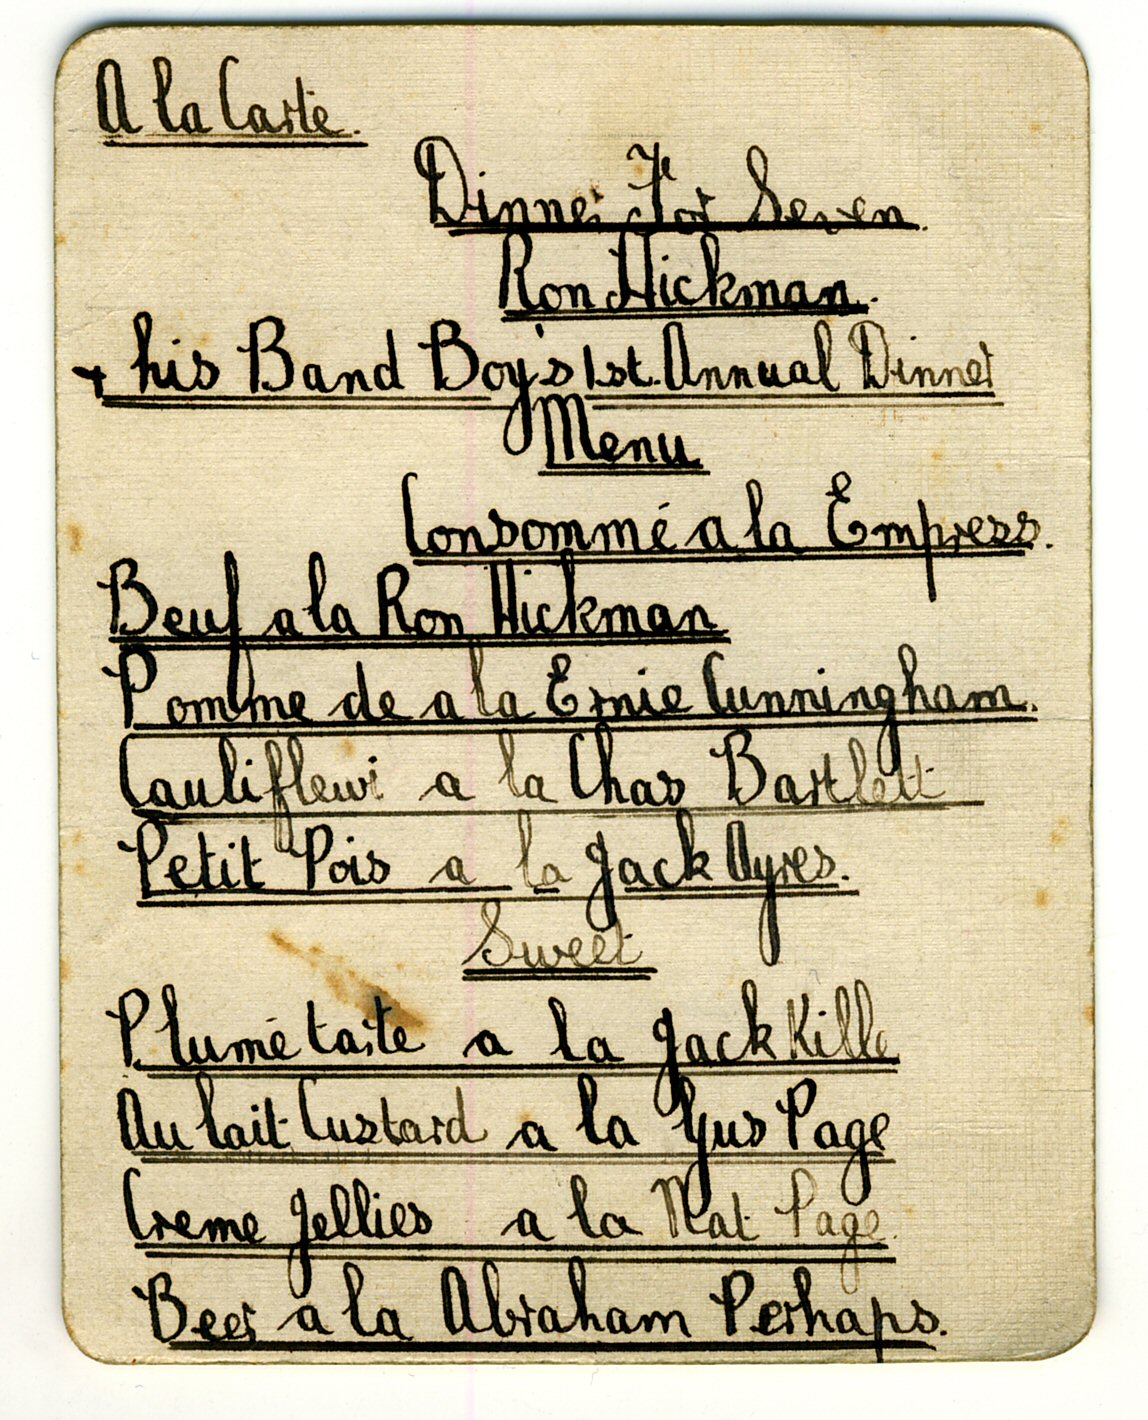 A la Carte.
Dinner For Seven.
Ron Hickman.
+ his Band Boy's 1st. Annual Dinner
Menu
Consommé a la Empress.
Beuf a la Ron Hickman
Pomme de a la Ernie Cunningham.
Caulifleur a la Chas Bartlett
Petit Pois a la Jack Ayres.
Sweet
Plumé tarte a la Jack
Au lait Custard a la Gus Page
Creme Jellies a la Nat Page.
Beer a la Abraham Perhaps.